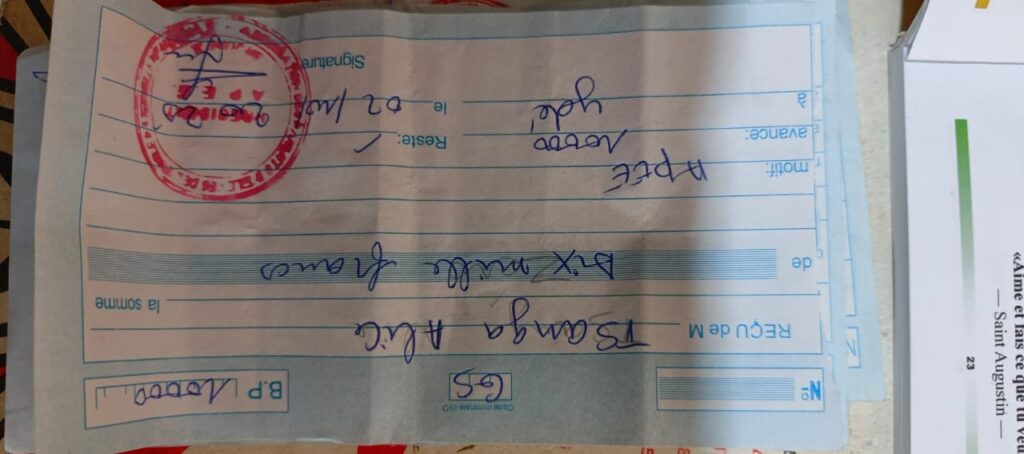 N°
Code monnaie ISO
GS
B.P 10000
REÇU de M TSanga Alice
la somme
de Dix mille francs
motif: APEE
avance: 10000 Reste: /
à ydé le 02/
Signature
«Aime et fais ce que tu veu
— Saint Augustin —
23